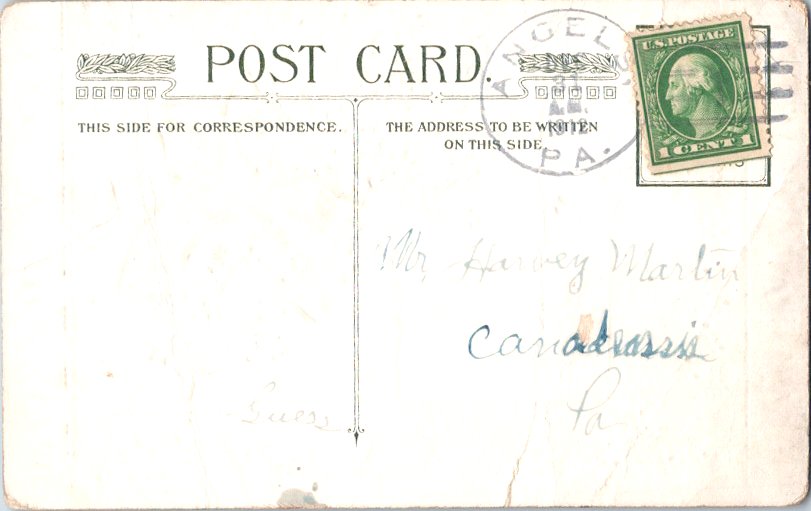 POST CARD.
THIS SIDE FOR CORRESPONDENCE.
THE ADDRESS TO BE WRITTEN
ON THIS SIDE
ANGELS
1912
PA.
U.S. POSTAGE
1 CENT 1
Mr. Harvey Martin
Canadensis
Pa
Guess